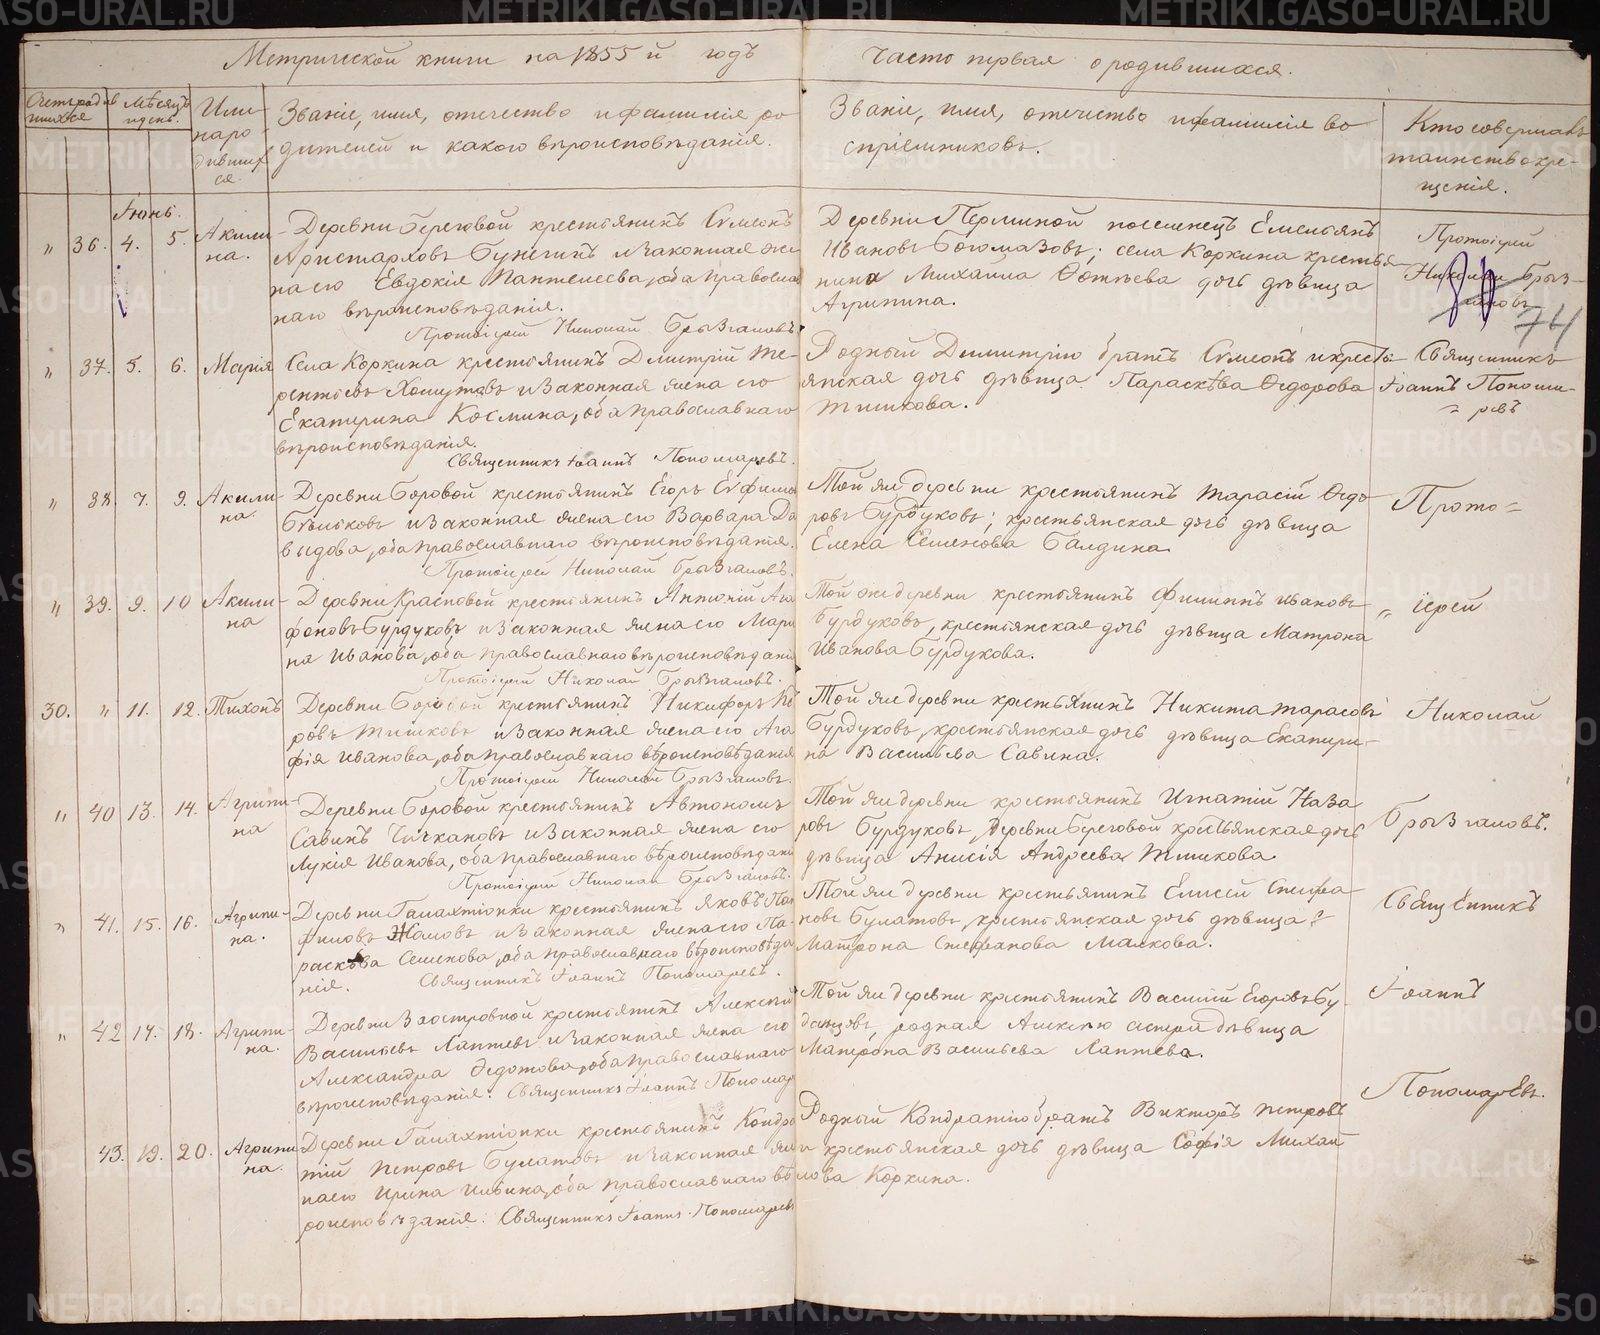 Метрической книги на 1855й годъ
часть первая о родившихся.
Счетъ родившихся
Мѣсяцъ и день.
Имя народившихся.
Званіе, имя, отчество и фамилія ро
дителей и какого вѣроисповѣданія.
Званіе, имя, отчество и фамилія во
спріемниковъ.
Кто совершалъ
таинство кре-
щенія.
Іюнь.
" 36. 4. 5. Акили-
на.
Деревни Береговой крестьянинъ Сѵмеонъ
Аристарховъ и законная же
на его Евдокія Пантелеева, оба православ
наго вѣроисповѣданія.
Протоіерей Николай Брызгаловъ
Деревни Першиной поселенецъ Емельянъ
Ивановъ Богомазовъ; села Коркина крестья-
нина Михаила Фотѣева дочь дѣвица
Агрипина.
Протоіерей
Николай Брыз-
галовъ
74
" 37. 5. 6. Марія
Села Коркина крестьянинъ Димитрій Те-
рентьевъ и законная жена его
Екатерина Космина, оба православнаго
вѣроисповѣданія.
Священникъ Іоаннъ Пономаревъ.
Родный Димитрію братъ Сѵмеонъ и кресть-
янская дочь дѣвица Параскѣва Ѳедорова
Тишкова.
Священникъ
Іоаннъ Понома-
ревъ
" 38. 7. 9. Акили-
на.
Деревни Боровой крестьянинъ Егоръ Евфимо
Бѣльковъ и законная жена его Варвара Да
выдова, оба православнаго вѣроисповѣданія.
Протоіерей Николай Брызгаловъ.
Той же деревни крестьянинъ Тарасій Ѳедо-
ровъ Бурдуковъ; крестьянская дочь дѣвица
Елена Семенова Балдина.
Прото=
" 39. 9. 10 Акили-
на
Деревни Красновой крестьянинъ Антоній Ага
фоновъ Бурдуковъ и законная жена его Мари
на Иванова, оба православнаго вѣроисповѣдані
Протоіерей Николай Брызгаловъ.
Той же деревни крестьянинъ Филиппъ Ивановъ
Бурдуковъ, крестьянская дочь дѣвица Матрона
Иванова Бурдукова.
" іерей
30. " 11. 12. Тихонъ
Деревни Боровой крестьянинъ Никифоръ
ровъ Тишковъ и законная жена его Ага
фія Иванова, оба православнаго вѣроисповѣданія
Протоіерей Николай Брызгаловъ.
Той же деревни крестьянинъ Никита Тарасовъ
Бурдуковъ, крестьянская дочь дѣвица Екатери-
на Васильева Савина.
Николай
" 40 13. 14. Агрипи-
на
Деревни Боровой крестьянинъ Автономъ
Савинъ Чичкановъ и законная жена его
Лукія Иванова, оба православнаго вѣроисповѣдані
Протоіерей Николай Брызгаловъ.
Той же деревни крестьянинъ Игнатій Наза
ровъ Бурдуковъ, деревни Береговой крестьянская дочь
дѣвица Анисія Андреева Тишкова.
Брызгаловъ.
" 41. 15. 16. Агрипи-
на.
Деревни Галахтіонки крестьянинъ Яковъ Пан
филовъ и законная жена его Па-
раскѣва Семенова, оба православнаго вѣроисповѣда
нія. Священникъ Іоаннъ Пономаревъ.
Той же деревни крестьянинъ Елисей Стефа-
новъ Булатовъ, крестьянская дочь дѣвица
Матрона Стефанова Малкова.
Священникъ
" 42 17. 18. Агрипи-
на.
Деревни Заостровной крестьянинъ Алексѣй
Васильевъ Лаптевъ и законная жена его
Александра Ѳедотова, оба православнаго
вѣроисповѣданія. Священникъ Іоаннъ Пономар
Той же деревни крестьянинъ Василій Егоровъ
родная Алексѣю сестра дѣвица
Матрона Васильева Лаптева.
Іоаннъ
43. 19. 20. Агрипи
на.
Деревни Галахтіонки крестьянинъ Кондра
тій Петровъ Булатовъ и законная же
на его Ирина Ильина, оба православнаго вѣ
роисповѣданія. Священникъ Іоаннъ Пономаревъ
Родный Кондратію братъ Викторъ Петровъ
и крестьянская дочь дѣвица Софія Михай
лова Коркина.
Пономаревъ.